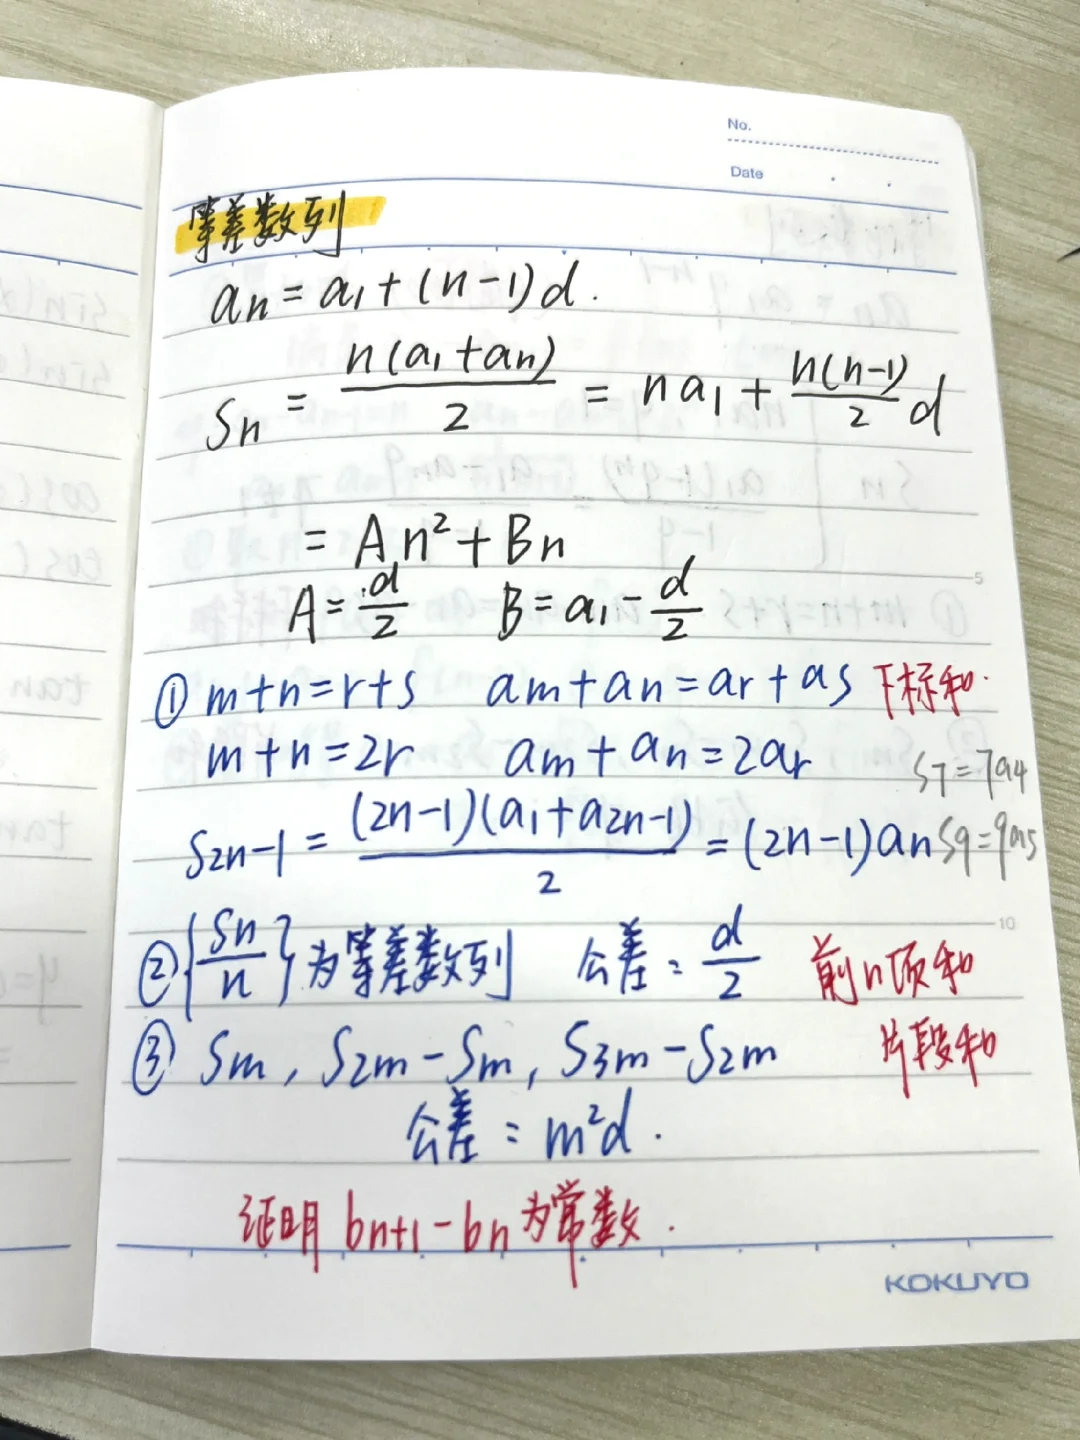 No.
Date
等差数列
an = a1 + (n-1)d.
Sn = n(a1+an)/2 = na1 + n(n-1)/2 d
= An² + Bn
A = d/2 B = a1 - d/2
① m+n=r+s am+an=ar+as 下标和.
m+n=2r am+an=2ar
S7=7a4
S2n-1 = (2n-1)(a1+a2n-1)/2 = (2n-1)an S9=9a5
5
10
② {Sn/n} 为等差数列 公差: d/2 前n项和
③ Sm, S2m-Sm, S3m-S2m 片段和
公差: m²d.
证明 bn+1-bn 为常数.
KOKUYO